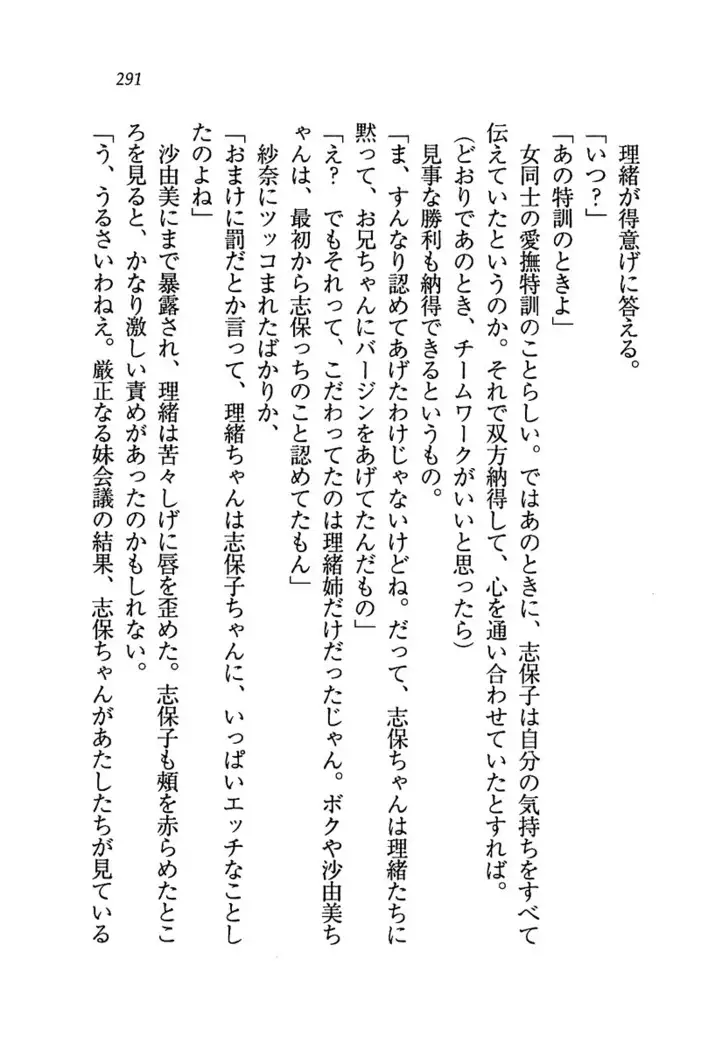 291
理緒が得意げに答える。
「いつ？」
「あの特訓のときよ」
女同士の愛撫特訓のことらしい。ではあのときに、志保子は自分の気持ちをすべて
伝えていたというのか。それで双方納得して、心を通い合わせていたとすれば。
（どおりであのとき、チームワークがいいと思ったら）
見事な勝利も納得できるというもの。
「ま、すんなり認めてあげたわけじゃないけどね。だって、志保ちゃんは理緒たちに
黙って、お兄ちゃんにバージンをあげてたんだもの」
「え？　でもそれって、こだわってたのは理緒姉だけだったじゃん。ボクや沙由美ち
ゃんは、最初から志保っちのこと認めてたもん」
紗奈にツッコまれたばかりか、
「おまけに罰だとか言って、理緒ちゃんは志保子ちゃんに、いっぱいエッチなことし
たのよね」
沙由美にまで暴露され、理緒は苦々しげに唇を歪めた。志保子も頰を赤らめたとこ
ろを見ると、かなり激しい責めがあったのかもしれない。
「う、うるさいわねえ。厳正なる妹会議の結果、志保ちゃんがあたしたちが見ている